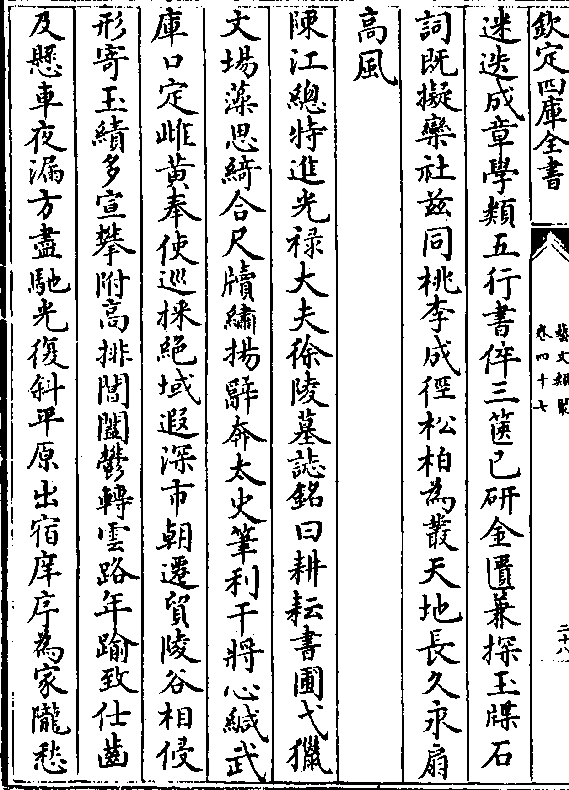 欽定四庫全書
藝文類聚
卷四十七
二十八
迷迭成章學類五行書倅三篋已研金匱兼探玉牒石
詞既擬欒社兹同桃李成徑松柏為叢天地長久永扇
髙風
陳江總特進光禄大夫徐陵墓誌銘曰耕耘書圃弋獵
文場藻思綺合尺牘繡揚辭奔太史筆利干將心緘武
庫口定雌黄奉使巡採絶域遐深市朝遷貿陵谷相侵
形寄玉績多宣攀附高排閶闔鬱轉雲路年踰致仕齒
及懸車夜漏方盡馳光復斜平原出宿庠序為家隴愁